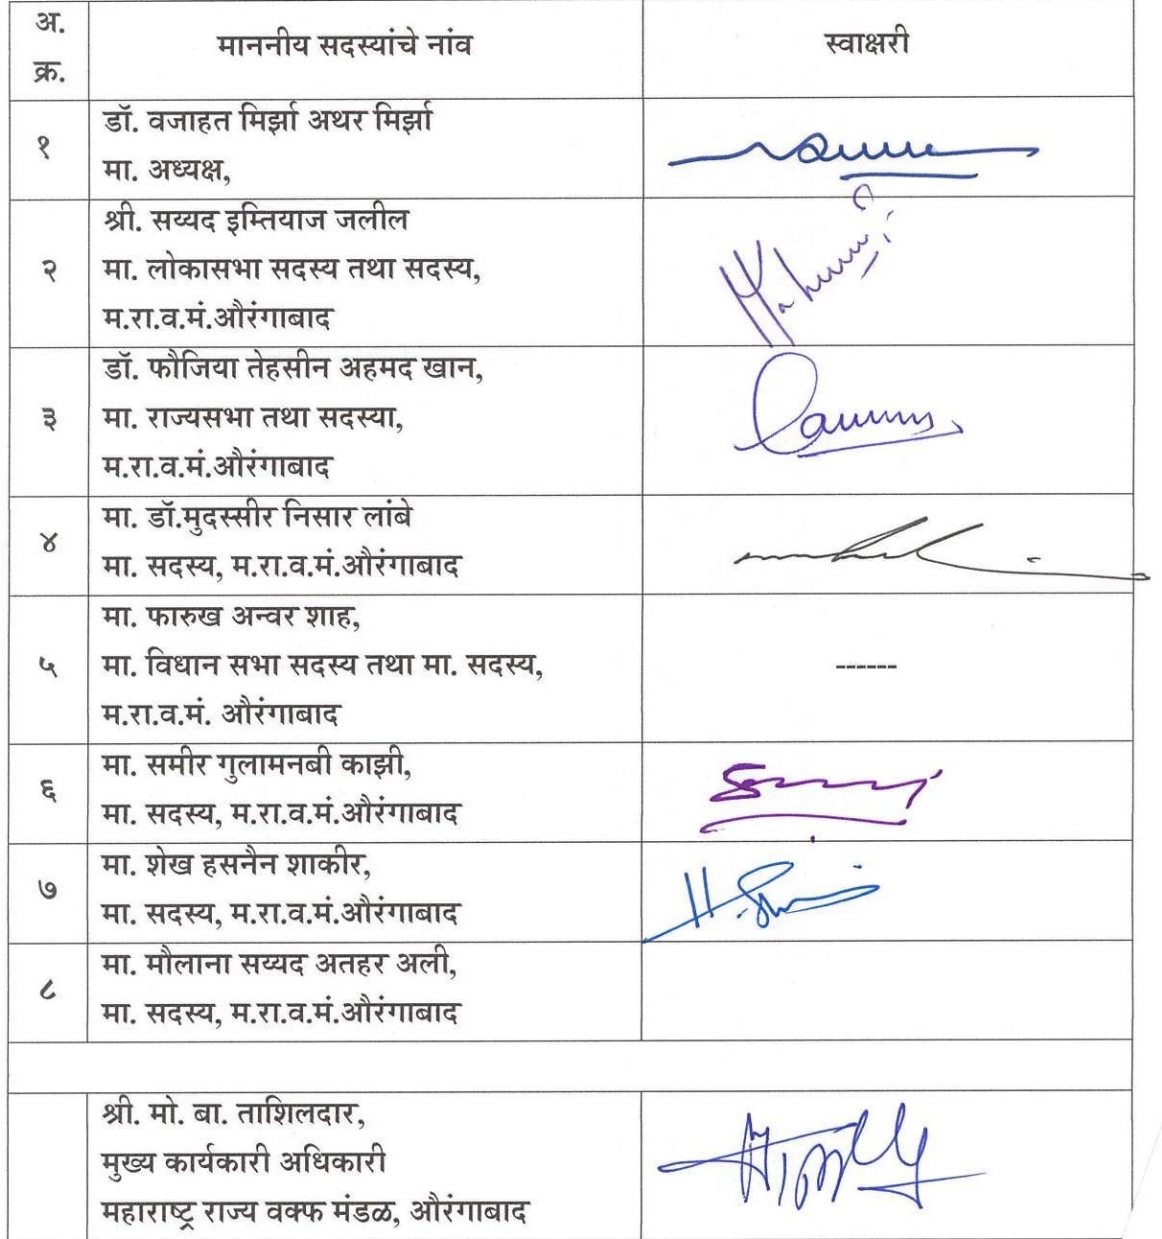 अ.
क्र.
माननीय सदस्यांचे नांव
स्वाक्षरी
१
डॉ. वजाहत मिर्झा अथर मिर्झा
मा. अध्यक्ष,
२
श्री. सय्यद इम्तियाज जलील
मा. लोकासभा सदस्य तथा सदस्य,
म.रा.व.मं.औरंगाबाद
३
डॉ. फौजिया तेहसीन अहमद खान,
मा. राज्यसभा तथा सदस्या,
म.रा.व.मं.औरंगाबाद
४
मा. डॉ.मुदस्सीर निसार लांबे
मा. सदस्य, म.रा.व.मं.औरंगाबाद
५
मा. फारुख अन्वर शाह,
मा. विधान सभा सदस्य तथा मा. सदस्य,
म.रा.व.मं. औरंगाबाद
------
६
मा. समीर गुलामनबी काझी,
मा. सदस्य, म.रा.व.मं.औरंगाबाद
७
मा. शेख हसनैन शाकीर,
मा. सदस्य, म.रा.व.मं.औरंगाबाद
८
मा. मौलाना सय्यद अतहर अली,
मा. सदस्य, म.रा.व.मं.औरंगाबाद
श्री. मो. बा. ताशिलदार,
मुख्य कार्यकारी अधिकारी
महाराष्ट्र राज्य वक्फ मंडळ, औरंगाबाद